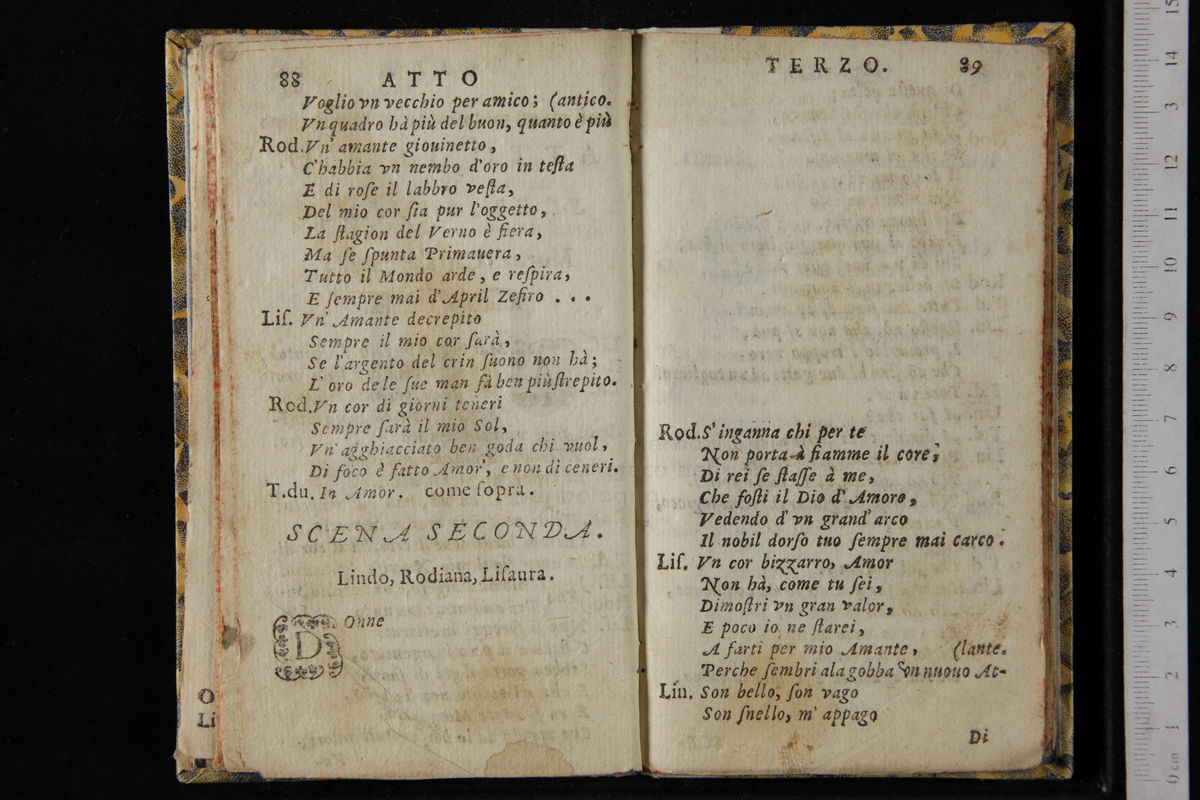 88 ATTO
Voglio vn vecchio per amico; (antico.
Vn quadro hà più del buon, quanto è più
Rod. Vn' amante giouinetto,
C'habbia vn nembo d'oro in teſta
E di roſe il labbro veſta,
Del mio cor ſia pur l'oggetto,
La ſtagion del Verno è fiera,
Ma ſe ſpunta Primauera,
Tutto il Mondo arde, e reſpira,
E ſempre mai d'April Zefiro . . .
Liſ. Vn' Amante decrepito
Sempre il mio cor ſarà,
Se l'argento del crin ſuono non hà;
L' oro dele ſue man fà ben più ſtrepito.
Rod. Vn cor di giorni teneri
Sempre ſarà il mio Sol,
Vn' agghiacciato ben goda chi vuol,
Di foco è fatto Amor, e non di ceneri.
T.du. In Amor. come ſopra.
SCENA SECONDA.
Lindo, Rodiana, Liſaura.
Donne
O
Li
TERZO. 89
Rod. S' inganna chi per te
Non porta à fiamme il core;
Di rei ſe ſtaſſe à me,
Che foſti il Dio d' Amore,
Vedendo d' vn grand' arco
Il nobil dorſo tuo ſempre mai carco.
Liſ. Vn cor bizzarro, Amor
Non hà, come tu ſei,
Dimoſtri vn gran valor,
E poco io ne ſtarei,
A farti per mio Amante, (lante.
Perche ſembri ala gobba vn nuouo At-
Lin. Son bello, ſon vago
Son ſnello, m' appago
Di
15
14
3
12
11
10
9
8
7
6
5
4
3
2
1
0 cm